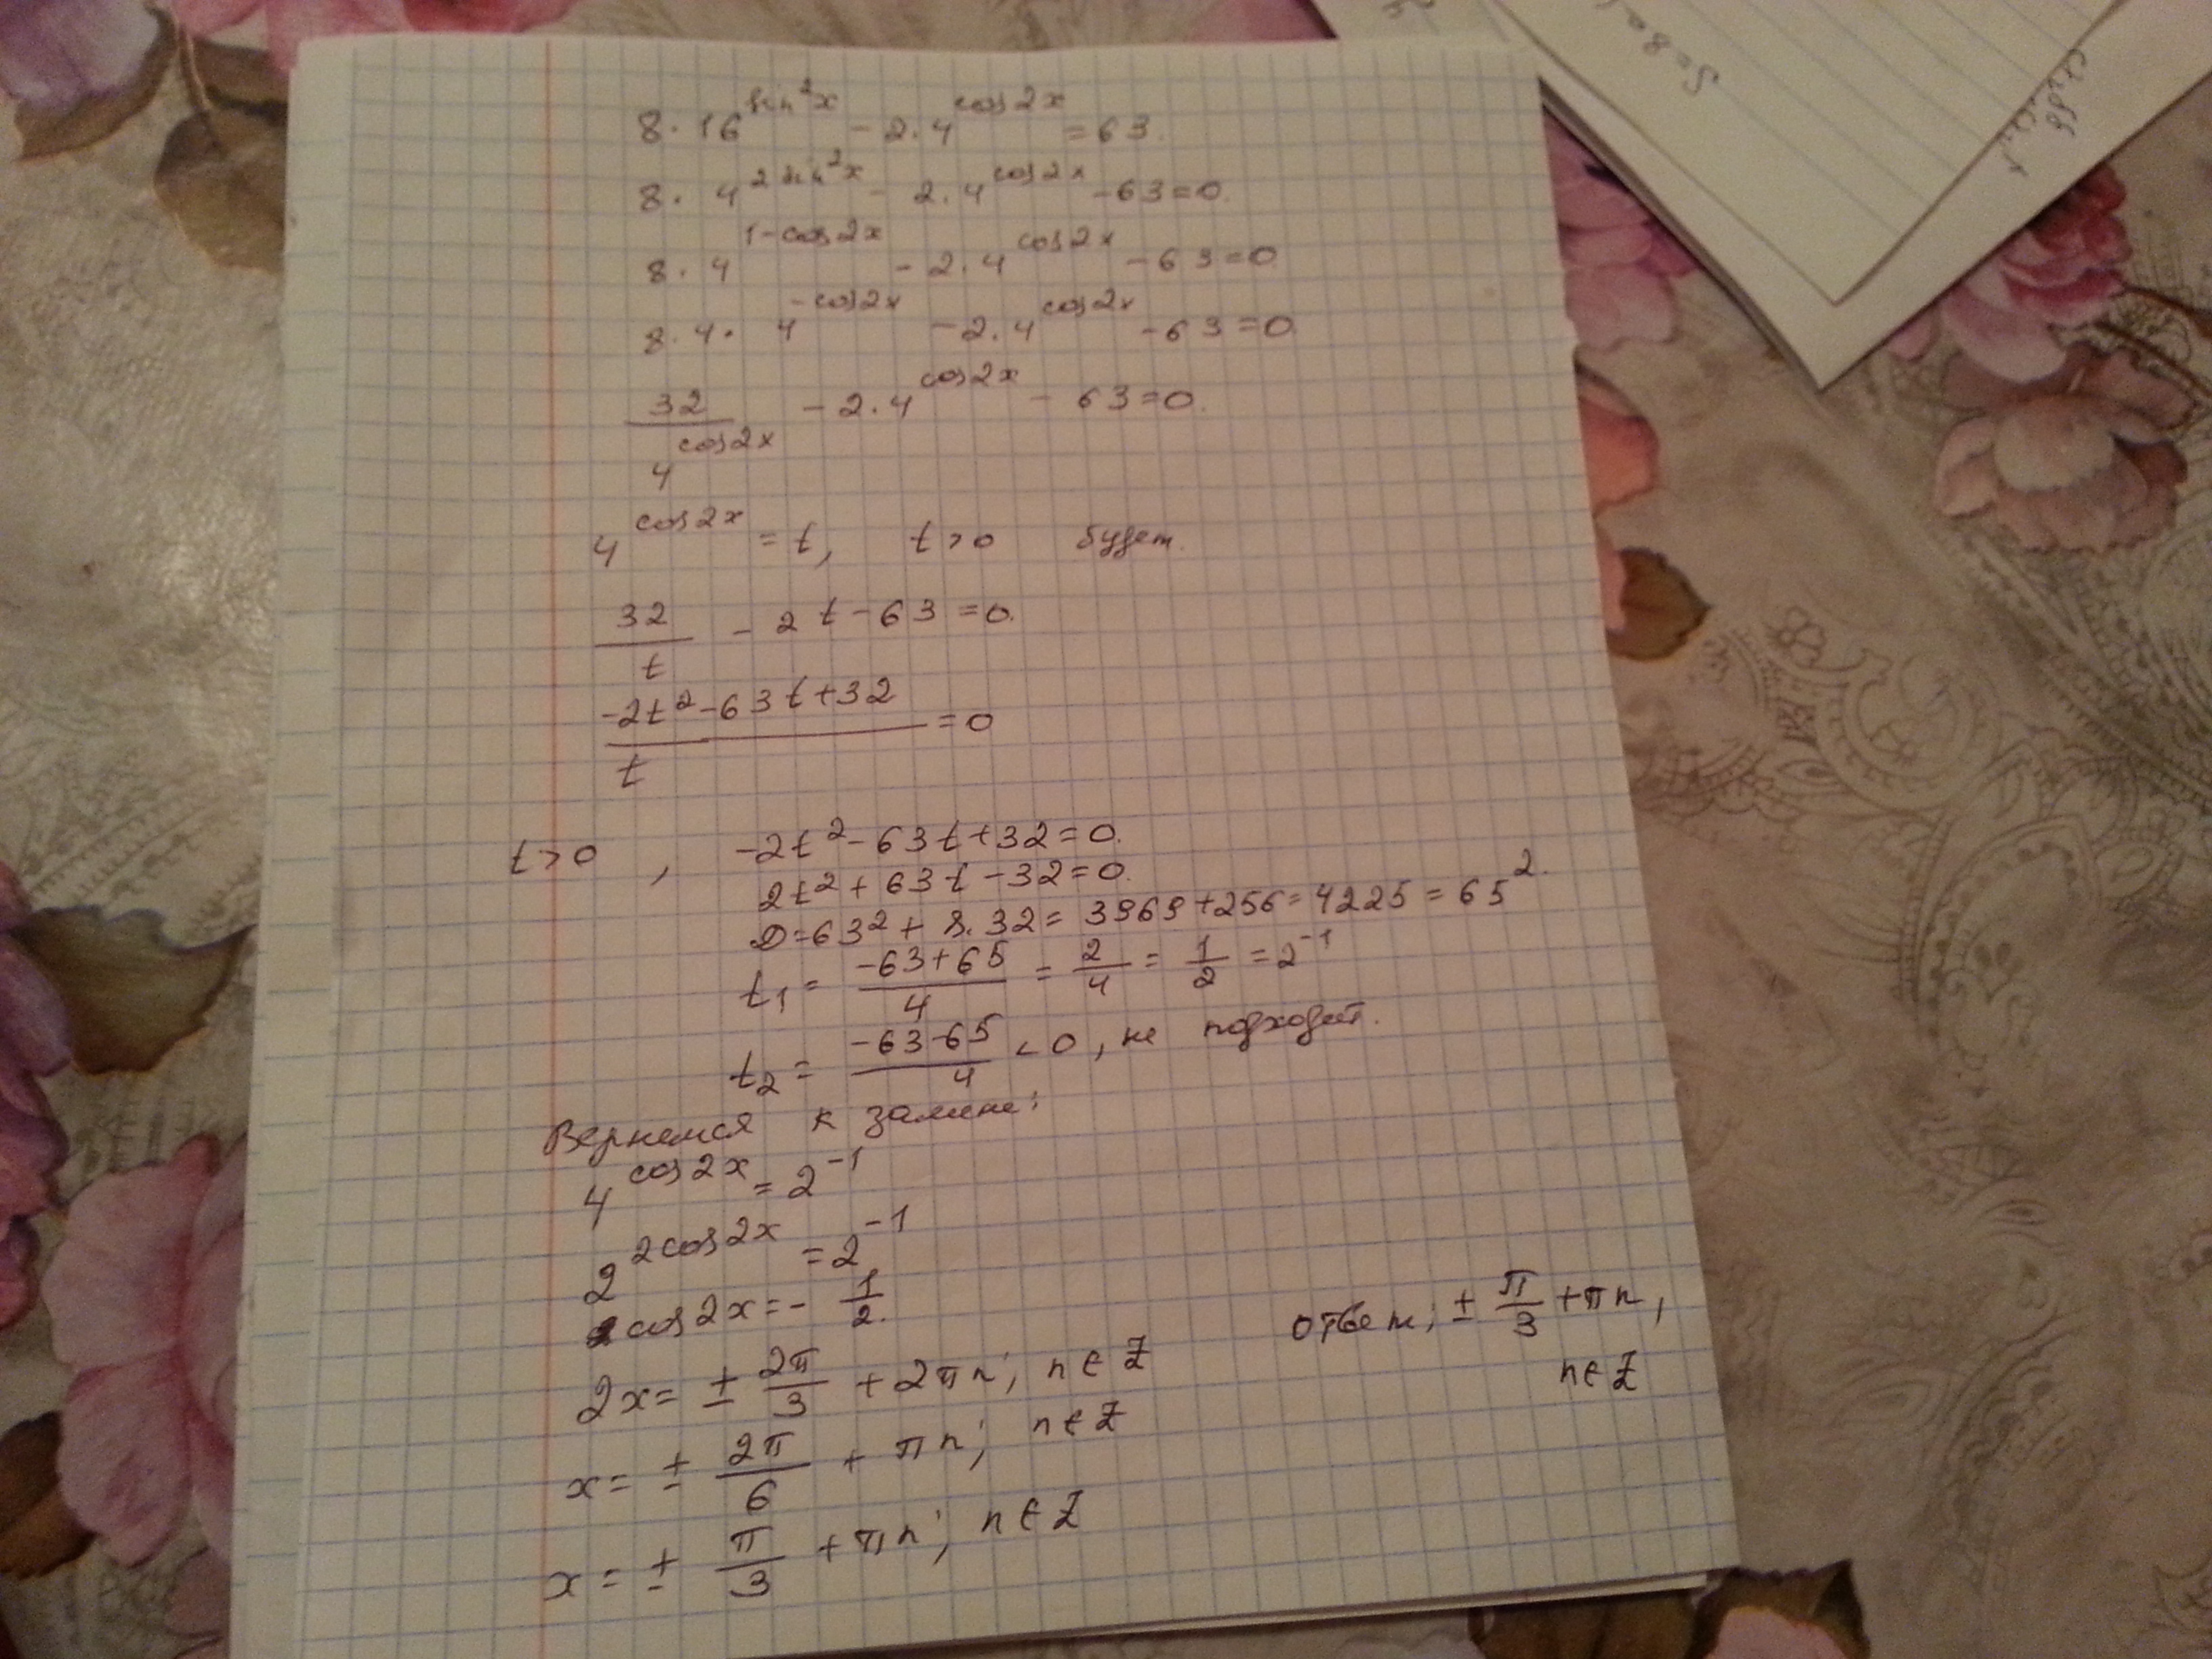 8 · 16^(sin²x) − 2 · 4^(cos2x) = 63.
8 · 4^(2sin²x) − 2 · 4^(cos2x) − 63 = 0.
8 · 4^(1−cos2x) − 2 · 4^(cos2x) − 63 = 0
8 · 4 · 4^(−cos2x) − 2 · 4^(cos2x) − 63 = 0.
32/4^(cos2x) − 2 · 4^(cos2x) − 63 = 0.
4^(cos2x) = t, t > 0 будет.
32/t − 2t − 63 = 0.
(−2t² − 63t + 32)/t = 0
t > 0 , −2t² − 63t + 32 = 0.
2t² + 63t − 32 = 0.
D = 63² + 8 · 32 = 3969 + 256 = 4225 = 65².
t₁ = (−63 + 65)/4 = 2/4 = 1/2 = 2⁻¹
t₂ = (−63 − 65)/4 < 0, не подходит.
Вернемся к замене:
4^(cos2x) = 2⁻¹
2^(2cos2x) = 2⁻¹
cos2x = − 1/2.
2x = ± 2π/3 + 2πn; n ∈ Z
x = ± 2π/6 + πn; n ∈ Z
x = ± π/3 + πn; n ∈ Z
ответ: ± π/3 + πn,
n ∈ Z